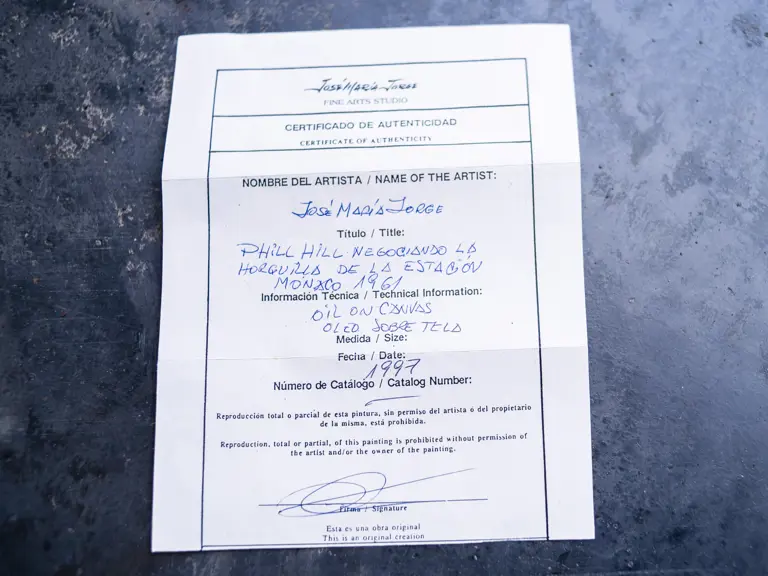 José María Jorge
FINE ARTS STUDIO
CERTIFICADO DE AUTENTICIDAD
CERTIFICATE OF AUTHENTICITY
NOMBRE DEL ARTISTA / NAME OF THE ARTIST:
JOSÉ MARÍA JORGE
Título / Title:
PHILL HILL NEGOCIANDO LA
HORQUILLA DE LA ESTACIÓN
MÓNACO 1961
Información Técnica / Technical Information:
OIL ON CANVAS
OLEO SOBRE TELA
Medida / Size:
Fecha / Date:
1997
Número de Catálogo / Catalog Number:
Reproducción total o parcial de esta pintura, sin permiso del artista ó del propietario
de la misma, está prohibida.
Reproduction, total or partial, of this painting is prohibited without permission of
the artist and/or the owner of the painting.
Firma / Signature
Esta es una obra original
This is an original creation